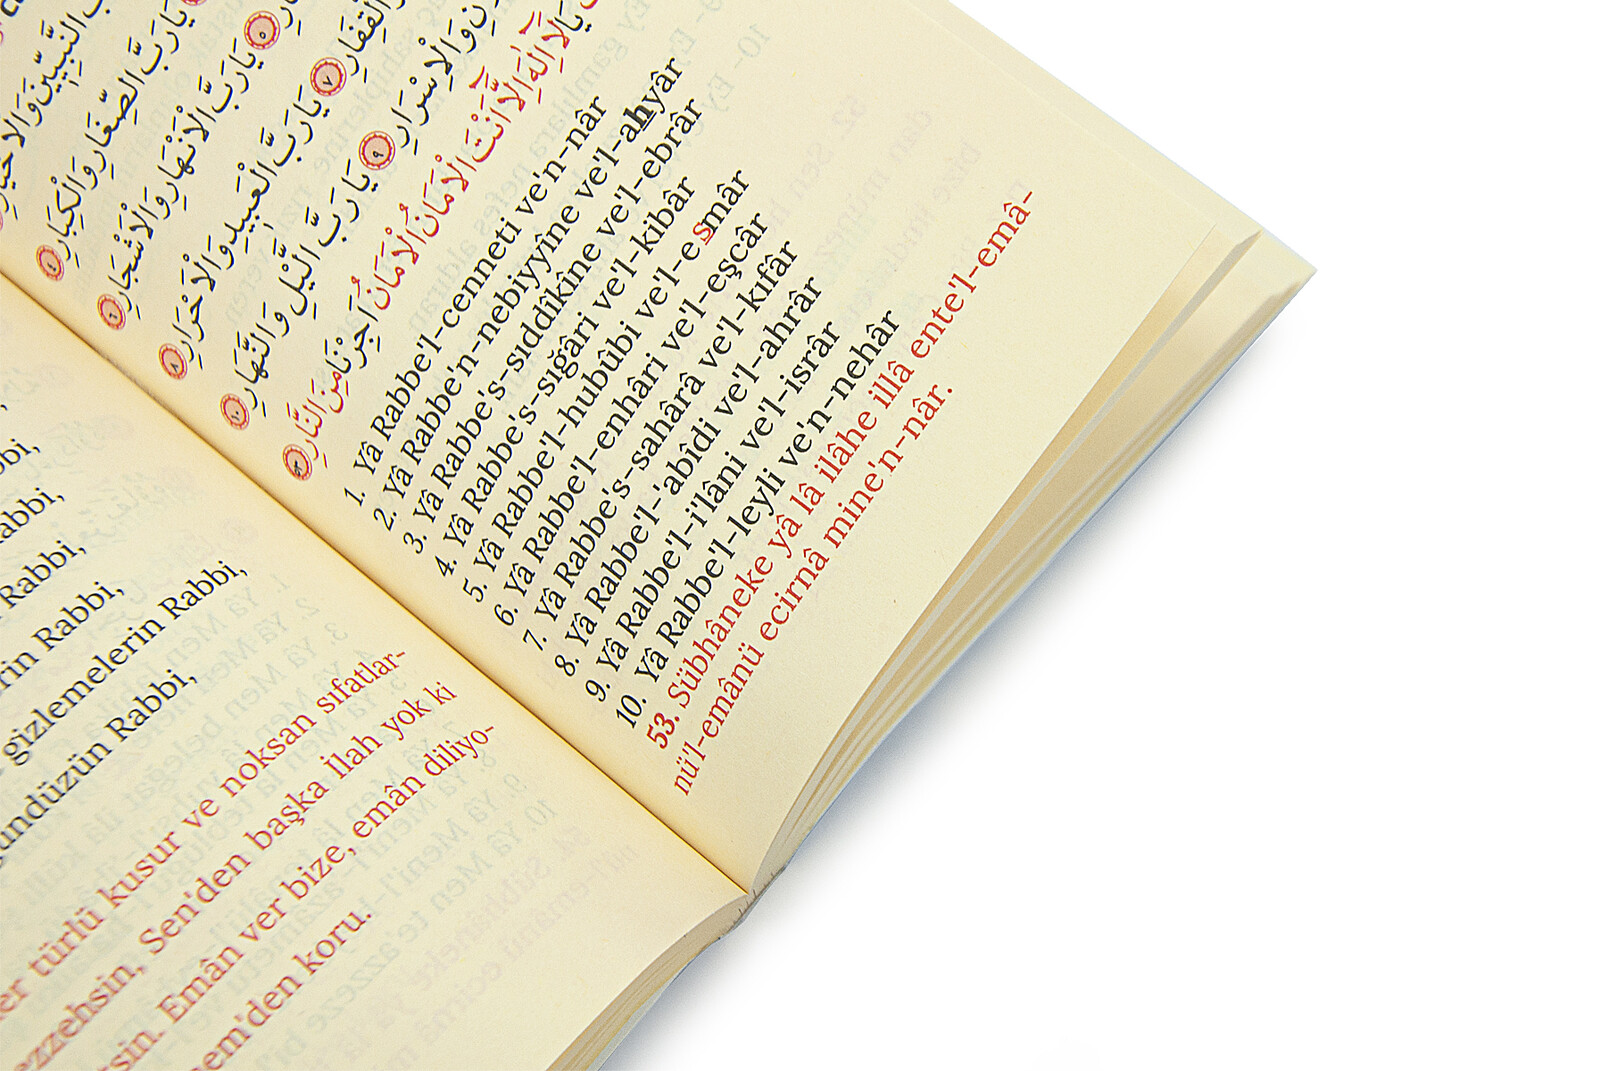 gizlemelerin Rabbi,
gündüzün Rabbi,
türlü kusur ve noksan sıfatlar-
Sen'den başka İlah yok ki
Emân ver bize, emân diliyo-
koru.
يَارَبَّ الصِّغَارِ وَالْكِبَارِ ٤
يَارَبَّ الْاَنْهَارِ وَالْاَشْجَارِ ٦
٧ يَارَبَّ الْعَبِيدِ وَالْاَحْرَارِ ٨
وَالْاِسْرَارِ ٩ يَارَبَّ الَّيْلِ وَالنَّهَارِ ١٠
يَالَٓا اِلٰهَ اِلَّٓا اَنْتَ الْاَمَانُ الْاَمَانُ اَجِرْنَا مِنَ النَّارِ
1. Yâ Rabbe'l-cenneti ve'n-nâr
2. Yâ Rabbe'n-nebiyyîne ve'l-ahyâr
3. Yâ Rabbe's-sıddîkîne ve'l-ebrâr
4. Yâ Rabbe's-sığâri ve'l-kibâr
5. Yâ Rabbe'l-hubûbi ve'l-esmâr
6. Yâ Rabbe'l-enhâri ve'l-eşcâr
7. Yâ Rabbe's-sahârâ ve'l-kıfâr
8. Yâ Rabbe'l-'abîdi ve'l-ahrâr
9. Yâ Rabbe'l-i'lâni ve'l-isrâr
10. Yâ Rabbe'l-leyli ve'n-nehâr
53. Sübhâneke yâ lâ ilâhe illâ ente'l-emâ-
nü'l-emânü ecirnâ mine'n-nâr.